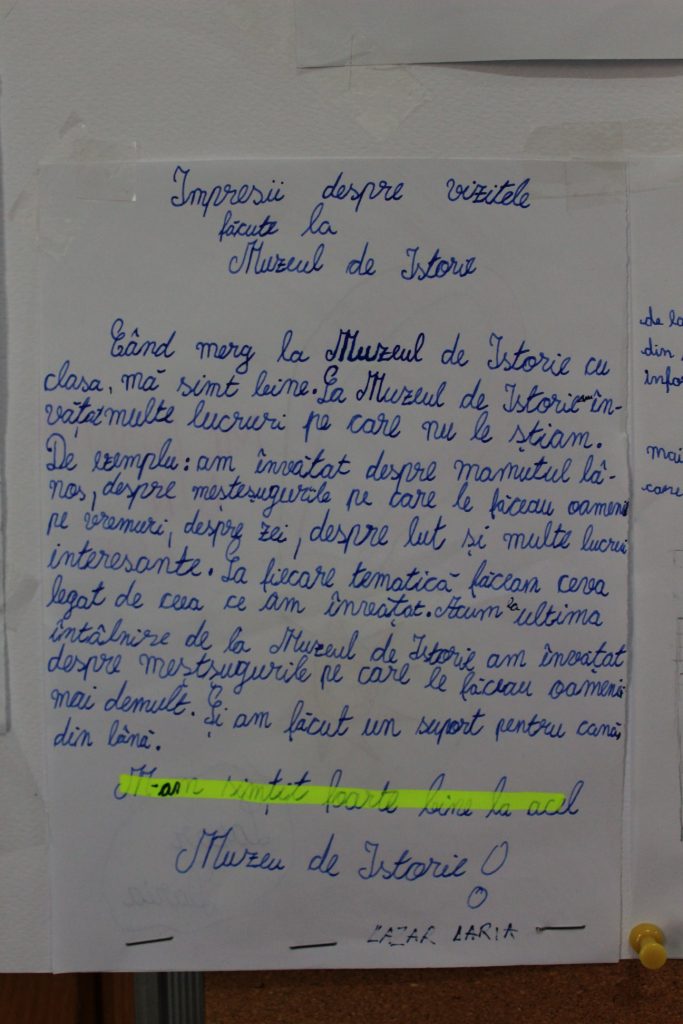 Impresii despre vizitele
făcute la
Muzeul de Istorie
Când merg la Muzeul de Istorie cu
clasa, mă simt bine. La Muzeul de Istorie am în-
vățat multe lucruri pe care nu le știam.
De exemplu: am învătat despre mamutul lâ-
nos, despre meșteșugurile pe care le făceau oamenii
pe vremuri, despre zei, despre lut și multe lucruri
interesante. La fiecare tematică făceam ceva
legat de ceea ce am învățat. Acum la ultima
întâlnire de la Muzeul de Istorie am învățat
despre mestșugurile pe care le făceau oamenii
mai demult. Și am făcut un suport pentru cană,
din lână.
M-am simțit foarte bine la acel
Muzeu de Istorie!
LAZAR DARIA
de la
din
infor
mai
care